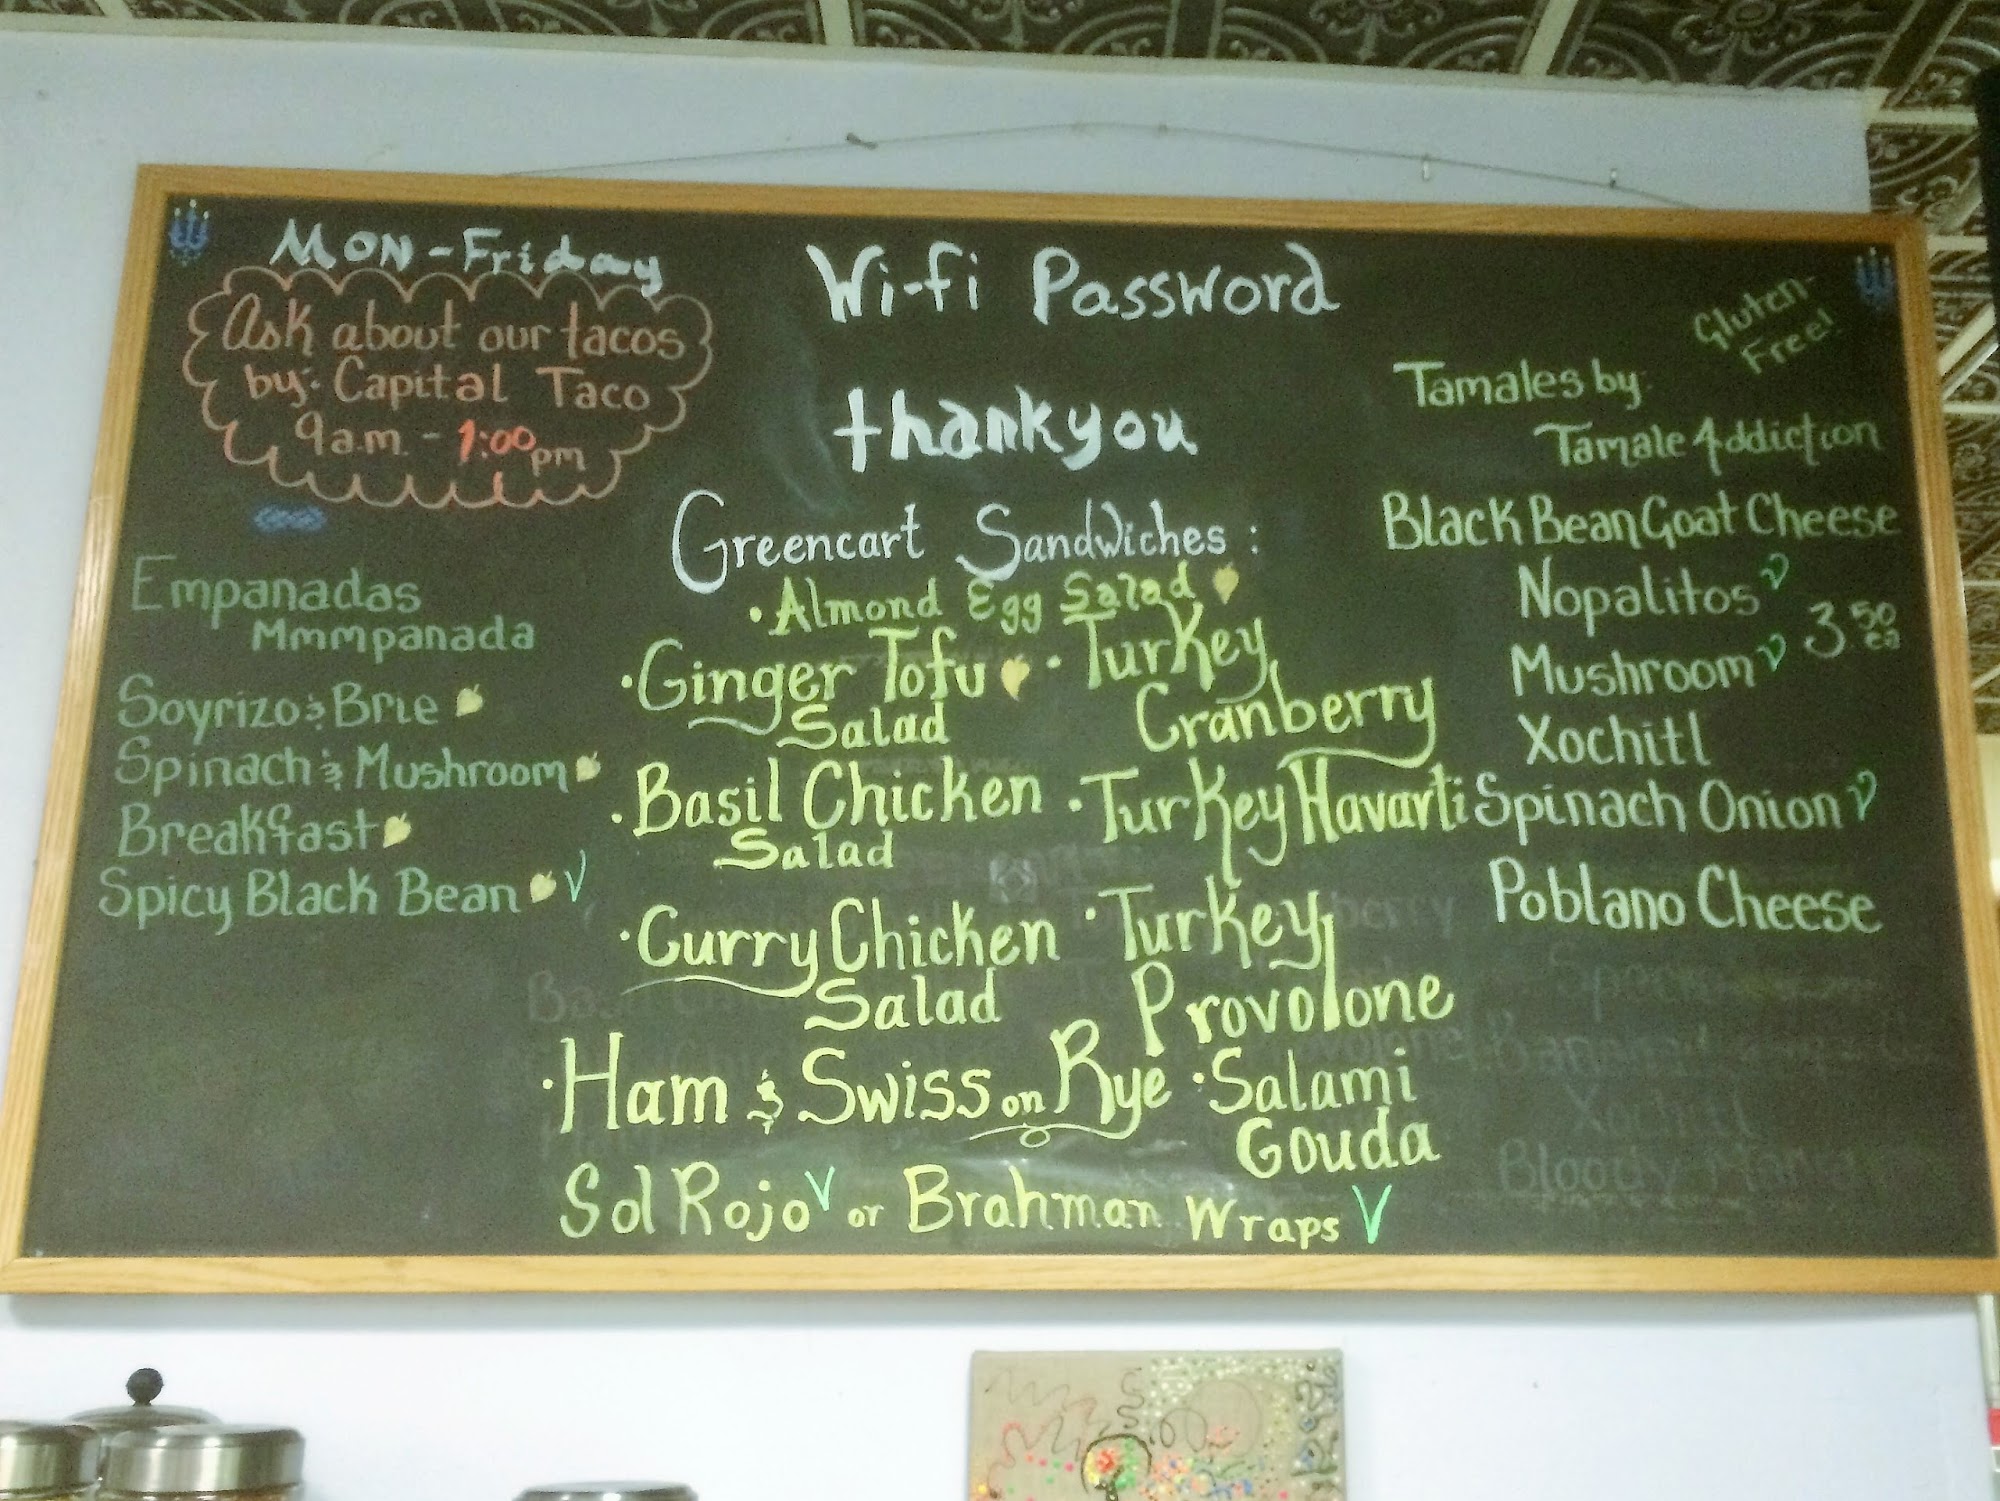 Mon-Friday
Ask about our tacos
by: Capital Taco
9 a.m. - 1:00 pm
Empanadas
Mmmpanada
Soyrizo & Brie
Spinach & Mushroom
Breakfast
Spicy Black Bean V
Wi-fi Password
thankyou
Greencart Sandwiches:
• Almond Egg Salad
• Ginger Tofu
Salad
• Basil Chicken
Salad
• Curry Chicken
Salad
• Ham & Swiss on Rye
• Turkey
Cranberry
• Turkey Havarti
• Turkey
Provolone
• Salami
Gouda
Sol Rojo V or Brahman Wraps V
Gluten-
Free!
Tamales by:
Tamale Addiction
Black Bean Goat Cheese
Nopalitos V
Mushroom V
3.50 ea
Xochitl
Spinach Onion V
Poblano Cheese
Xochitl